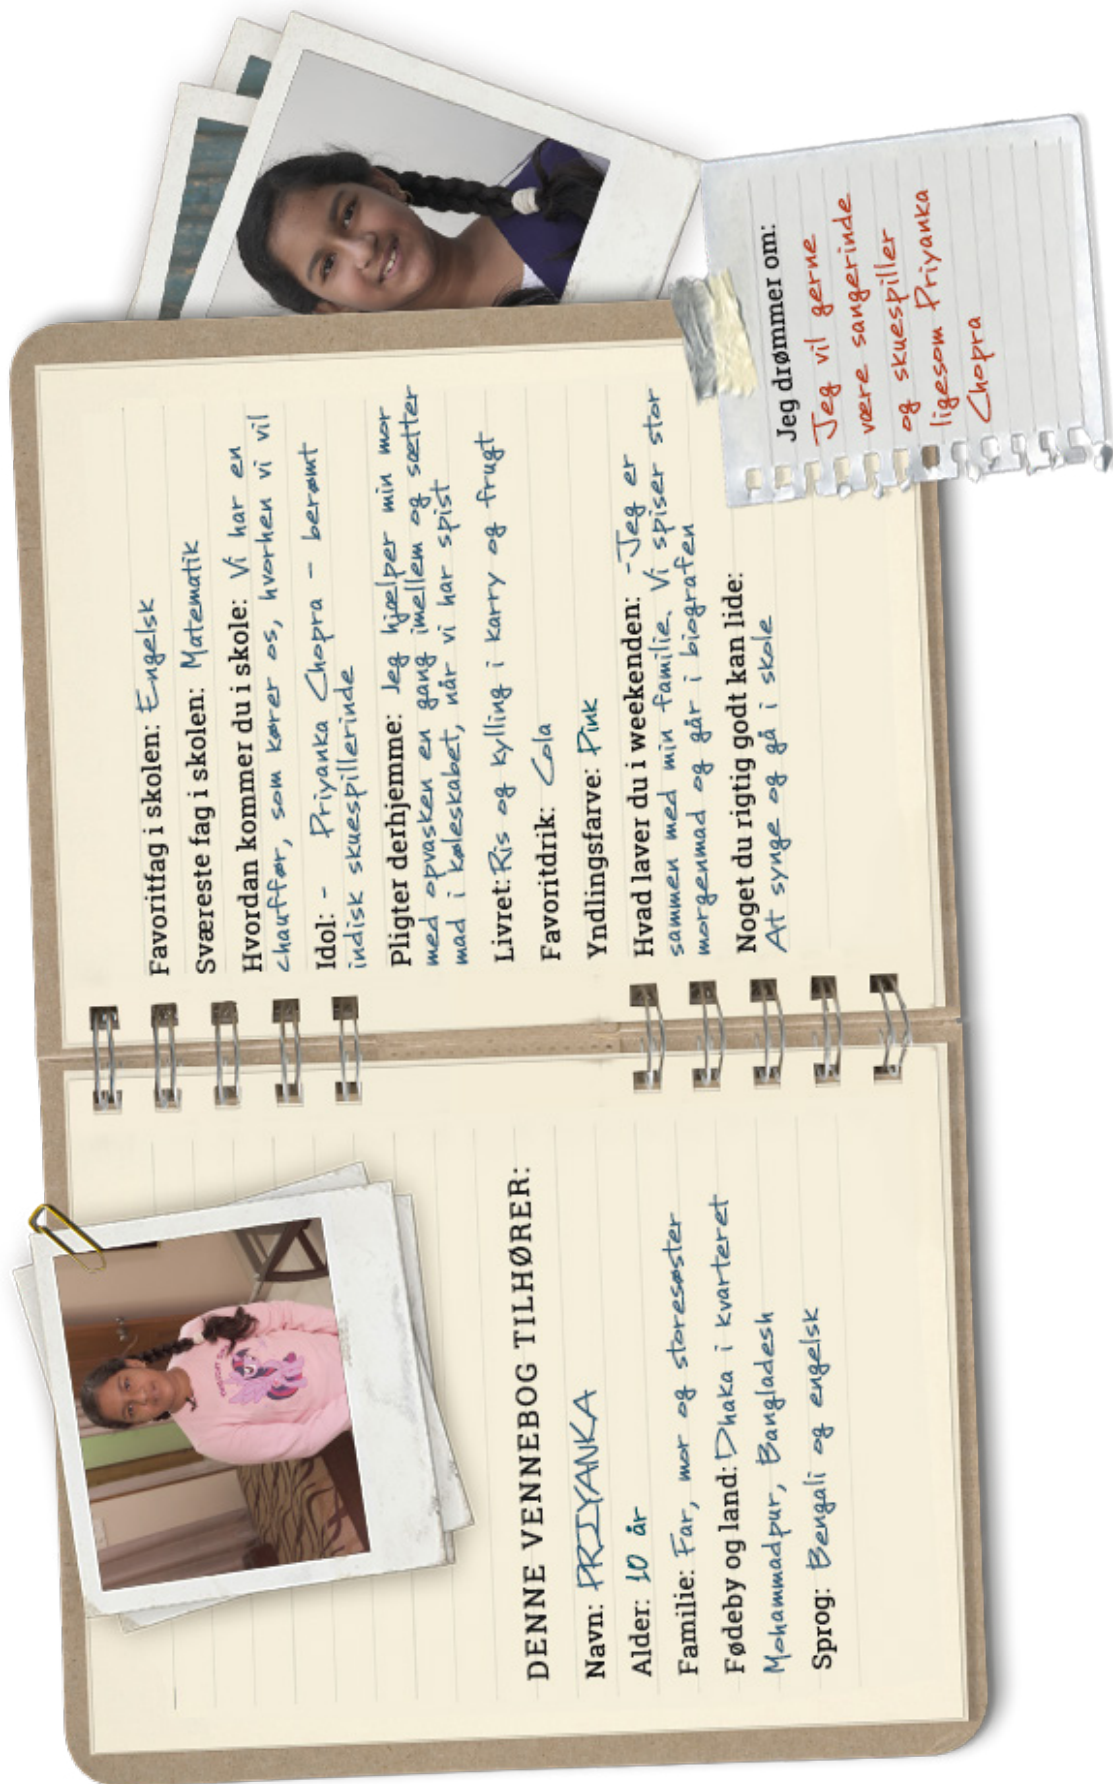 DENNE VENNEBOG TILHØRER:
Navn: PRIYANKA
Alder: 10 år
Familie: Far, mor og storesøster
Fødeby og land: Dhaka i kvarteret
Mohammadpur, Bangladesh
Sprog: Bengali og engelsk
Favoritfag i skolen: Engelsk
Sværeste fag i skolen: Matematik
Hvordan kommer du i skole: Vi har en
chauffør, som kører os, hvorhen vi vil
Idol: - Priyanka Chopra - berømt
indisk skuespillerinde
Pligter derhjemme: Jeg hjælper min mor
med opvasken en gang imellem og sætter
mad i køleskabet, når vi har spist
Livret: Ris og kylling i karry og frugt
Favoritdrik: Cola
Yndlingsfarve: Pink
Hvad laver du i weekenden: -Jeg er
sammen med min familie. Vi spiser stor
morgenmad og går i biografen
Noget du rigtig godt kan lide:
At synge og gå i skole
Jeg drømmer om:
Jeg vil gerne
være sangerinde
og skuespiller
ligesom Priyanka
Chopra